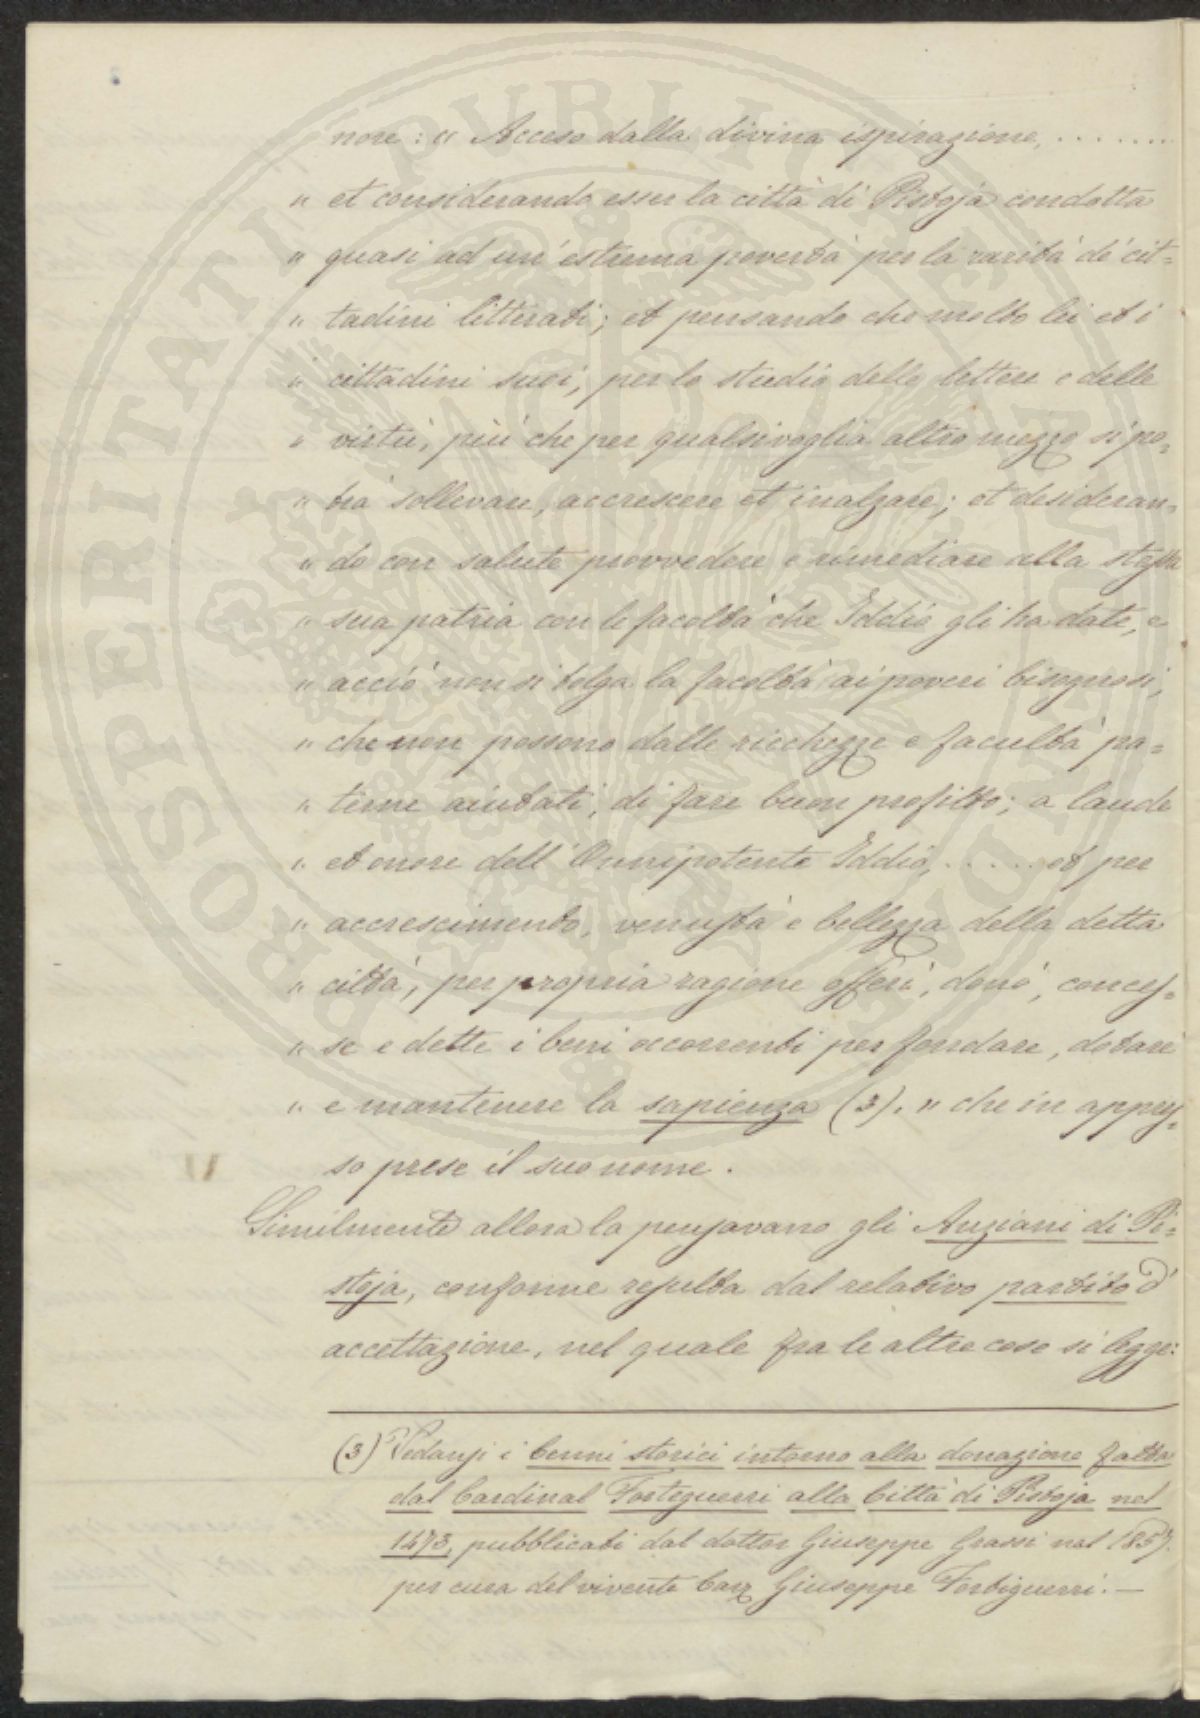 nore: « Acceso dalla divina ispirazione, . . . . . . .
" et considerando esser la città di Pistoja condotta
" quasi ad un' estrema povertà per la rarità de' cit=
" tadini litterati; et pensando che molto lei et i
" cittadini suoi, per lo studio delle lettere e delle
" virtù, più che per qualsivoglia altro mezzo si po=
" trà sollevare, accrescere et inalzare; et desideran=
" do con salute provvedere e rimediare alla stessa
" sua patria con le facoltà che Iddio gli ha date, e
" acciò non si tolga la facoltà ai poveri bisognosi,
" che non possono dalle ricchezze e facultà pa=
" terne aiutati, di fare buon profitto; a laude
" et onore dell' Onnipotente Iddio, . . . . . et per
" accrescimento, venustà e bellezza della detta
" città, per propria ragione offerì, donò, conces=
" se e dette i beni occorrenti per fondare, dotare
" e mantenere la sapienza (3). » che in appres=
so prese il suo nome.
Similmente allora la pensavano gli Anziani di Pi=
stoja, conforme resulta dal relativo partito d'
accettazione, nel quale fra le altre cose si legge:
(3) Vedansi i Cenni storici intorno alla donazione fatta
dal Cardinal Forteguerri alla Città di Pistoja nel
1473, pubblicati dal dottor Giuseppe Grassi nel 1857.
per cura del vivente Cav. Giuseppe Forteguerri. —
PROSPERITATI PUBLICAE AUGENDAE